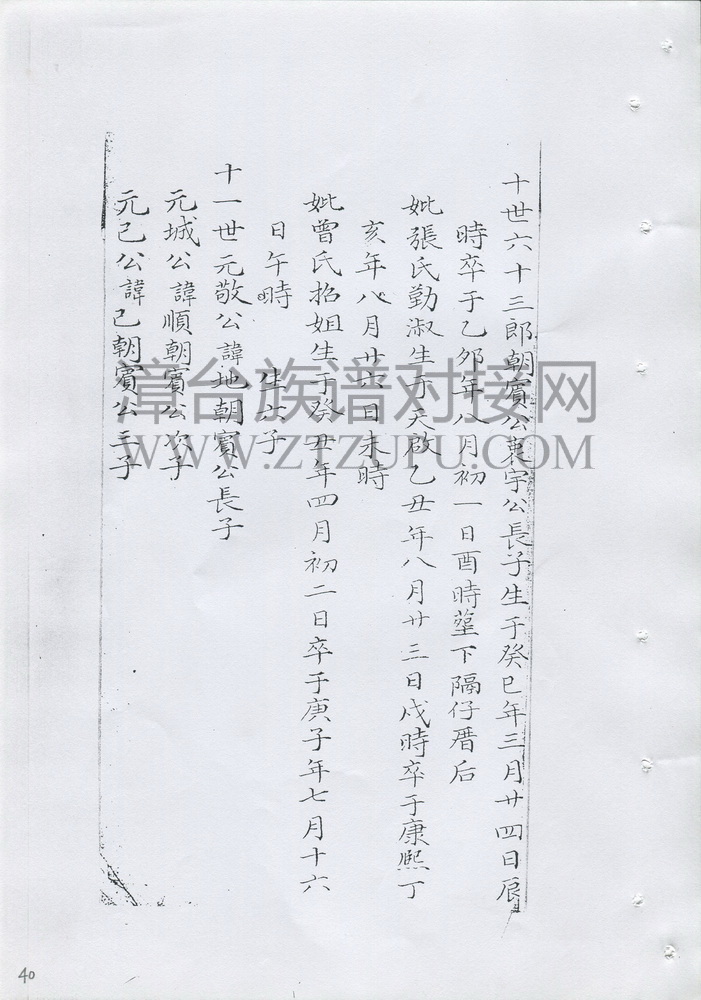 十世六十三郎朝賓公東宇公長子生于癸巳年三月廿四日辰
時卒于乙夘年八月初一日酉時塟下隔仔厝后
妣張氏勤淑生于天啟乙丑年八月廿三日戍時卒于康熈丁
亥年八月廿六日未時
妣曾氏招姐生于癸丑年四月初二日卒于庚子年七月十六
日午時 生六子
十一世元敬公諱地朝賓公長子
元城公諱順朝賓公次子
元己公諱己朝賓公三子
漳台族谱对接网
WWW.ZTZUPU.COM
40